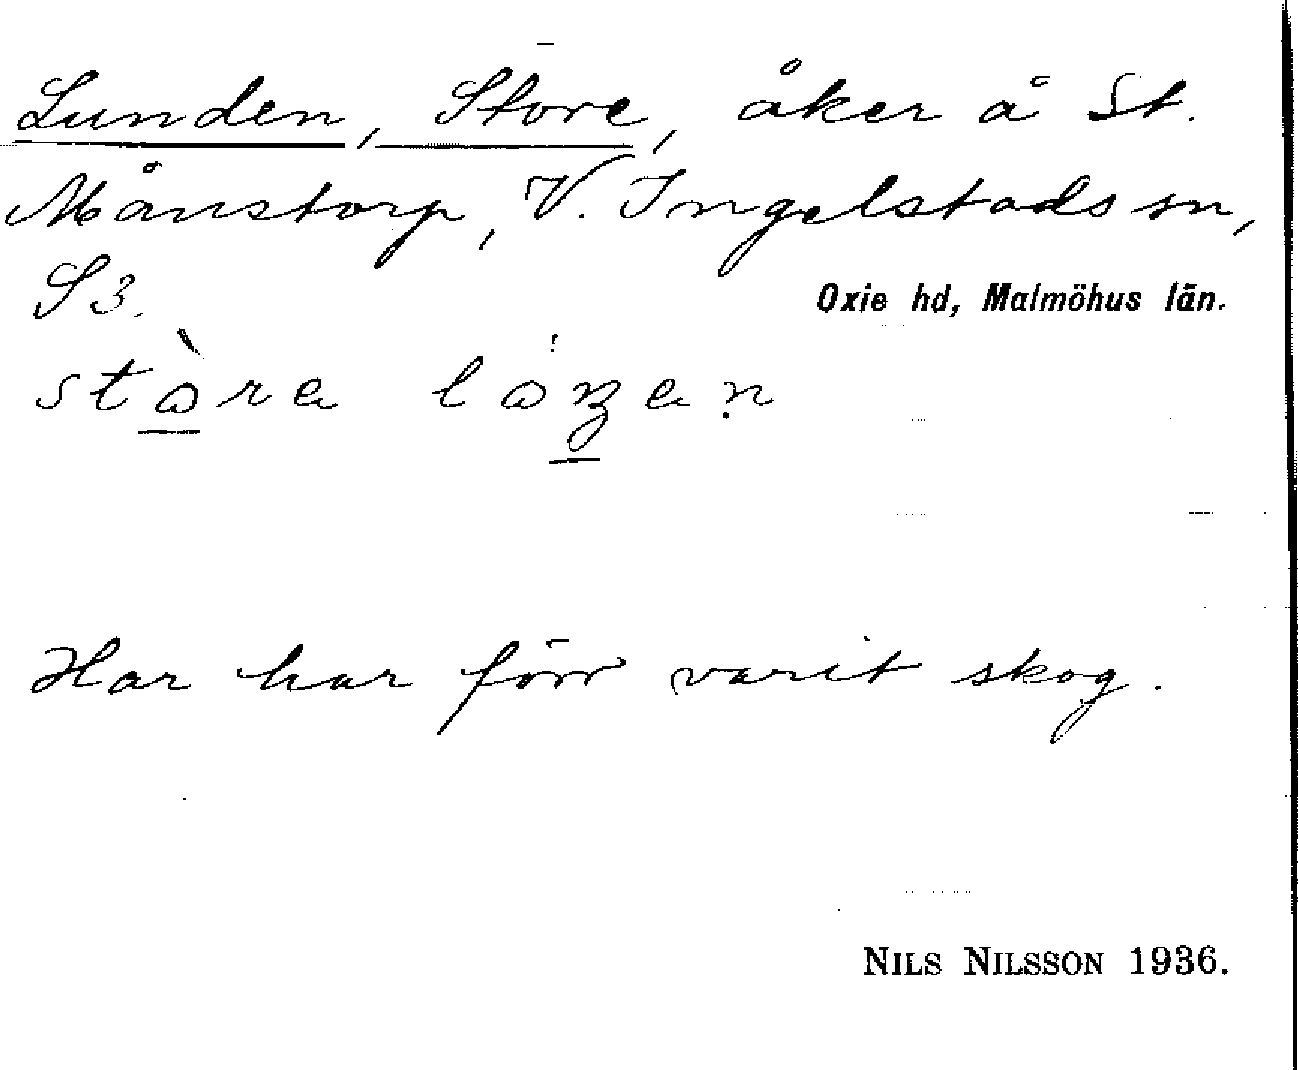 Lunden, Store, åker å St.
Månstorp, V. Ingelstads sn,
S3.
Oxie hd, Malmöhus län.
Har har förr varit skog.
NILS NILSSON 1936.